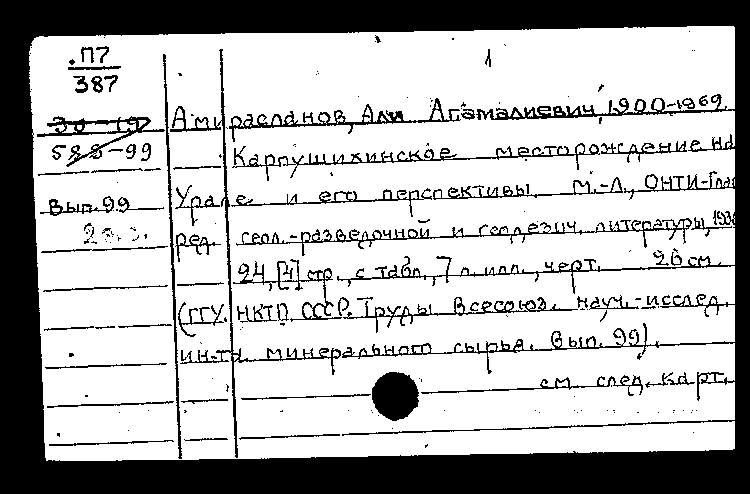 1
П7
387
30-19
588-99
Вып. 99
Амирасланов, Али Агамалиевич, 1900-1969.
Карпушихинское месторождение на
Урале и его перспективы. М.-Л., ОНТИ-Глав
ред. геол.-разведочной и геодезич. литературы, 193
24, [4] стр., с табл., 7 л. илл., черт. 26 см.
(ГГУ. НКТП СССР. Труды Всесоюз. науч.-исслед.
ин-та минерального сырья. Вып. 99).
см след. карт.